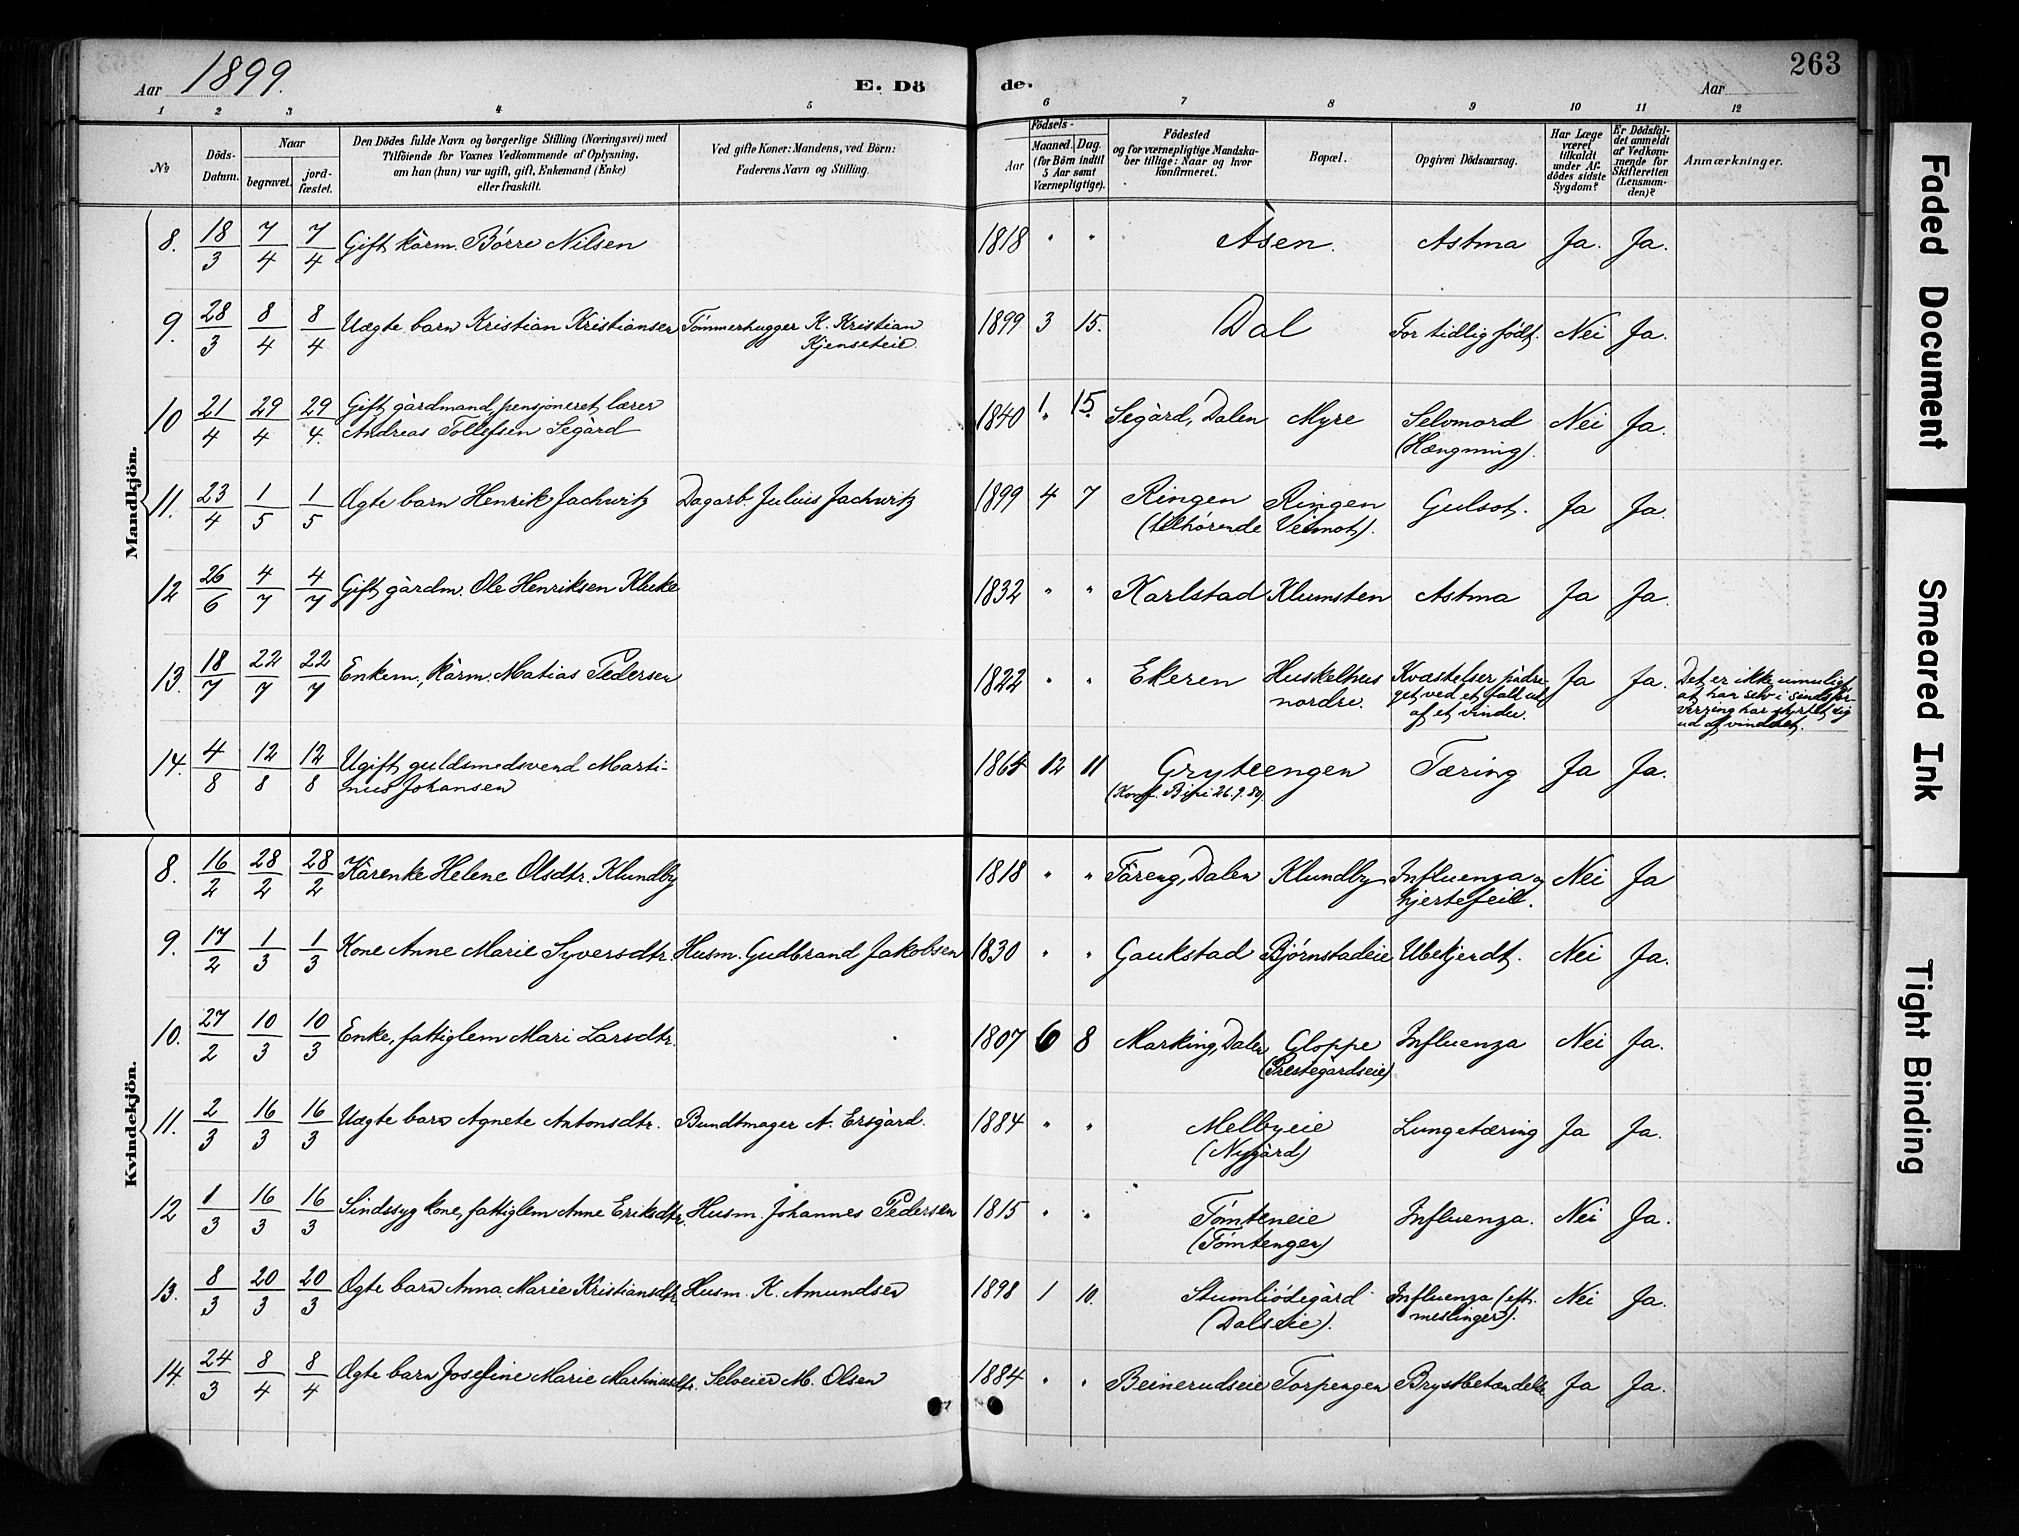 Aar 1899.
E. Döde.
Aar
263
1 2 3 4 5 6 7 8 9 10 11 12
№
Döds-Datum.
Naar
begravet.
jord-fæstet.
Den Dödes fulde Navn og borgerlige Stilling (Næringsvei) med
Tilföiende for Voxnes Vedkommende af Oplysning,
om han (hun) var ugift, gift, Enkemand (Enke)
eller fraskilt.
Ved gifte Koner: Mandens, ved Börn:
Faderens Navn og Stilling.
Födsels-
Aar
Maaned. Dag.
(for Börn indtil
5 Aar samt
Værnepligtige).
Födested
og for værnepligtige Mandska-
ber tillige: Naar og hvor
konfirmeret.
Bopæl.
Opgiven Dödsaarsag.
Har Læge
været
tilkaldt
under Af-
dödes sidste
Sygdom?
Er Dödsfal-
det anmeldt
af Vedkom-
mende for
Skifteretten
(Lensman-
den)?
Anmærkninger.
Mandkjön.
8. 18/3 7/4 7/4 Gift kårm. Børre Nilsen 1818 " " Åsen. Astma Ja. Ja.
9. 28/3 8/4 8/4 Uægte barn Kristian Kristiansen Tømmerhugger K. Kristian 1899 3 15. Dal For tidlig født. Nei Ja.
Kjenseteie.
10 21/4 29/4 29/4 Gift gårdmand, pensjoneret lærer 1840 1 15. Segård, Dalen Myre Selvmord Nei Ja.
Andreas Tollefsen Segård (Hængning).
11. 23/4 1/5 1/5 Ægte barn Henrik Jachwitz Dagarb. Julius Jachwitz 1899 4 7 Ringen Ringen Gulsot. Ja Ja.
(tilhørende Veimot).
12 26/6 4/7 4/7 Gift gårdm. Ole Henriksen Kluke 1832 " " Karlstad Klumsten Astma Ja Ja.
13. 18/7 22/7 22/7 Enkem., kårm. Matias Pedersen 1822 " " Ekeren Huskelhus Kvæstelser pådra- Ja Ja. Det er ikke umuligt,
nordre. get ved et fald ud at han selv i sindsfor-
af et vindu. virring har styrtet sig
ud af vinduet.
14. 4/8 12/8 12/8 Ugift guldsmedsvend Marti- 1864 12 11 Gryteengen Tæring Ja Ja.
nius Johansen (Konf. Biri 26.9.80).
Kvindekjön.
8. 16/2 28/2 28/2 Kårenke Helene Olsdtr. Klundby 1818 " " Tåreng, Dalen Klundby Influenza og Nei Ja
hjertefeil.
9. 17/2 1/3 1/3 Kone Anne Marie Syversdtr. Husm. Gudbrand Jakobsen 1830 " " Gaukstad Bjørnstadeie Ubekjendt. Nei Ja.
10. 27/2 10/3 10/3 Enke, fattiglem Mari Larsdtr. 1807 6 8 Marking, Dalen Gloppe Influenza Nei Ja.
(Prestegårdseie)
11. 2/3 16/3 16/3 Uægte barn Agnete Antonsdtr. Bundtmager A. Ersgård. 1884 " " Melbyeie Lungetæring Ja Ja.
(Nygård)
12 1/3 16/3 16/3 Sindssyg kone, fattiglem Anne Eriksdtr. Husm. Johannes Pedersen 1815 " " Tømteneie Influenza. Nei Ja.
(Tømtengen)
13. 8/3 20/3 20/3 Ægte barn Anna Marie Kristiansdtr. Husm. K. Amundsen 1898 1 10. Stumliødegård Influenza (eft. Nei Ja.
(Dalseie). meslinger).
14. 24/3 8/4 8/4 Ægte barn Josefine Marie Martinusdtr. Selveier M. Olsen 1884 " " Beinerudseie Torpengen Brystbetændelse Ja Ja.
Faded Document
Smeared Ink
Tight Binding